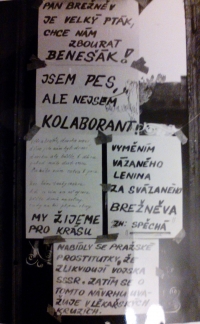 PAN BREŽNĚV
JE VELKÝ PTÁK,
CHCE NÁM
ZBOURAT
BENEŠÁK!
JSEM PES,
ALE NEJSEM
KOLABORANT
MY ŽIJEME
PRO KRÁSU
VYMĚNÍM
VÁZANÉHO
LENINA
ZA SVÁZANÉHO
BREŽNĚVA
ZN: SPĚCHÁ
NABÍDLY SE PRAŽSKÉ
PROSTITUTKY, ŽE
ZLIKVIDUJÍ VOJSKA
SSSR. ZATÍM SE O
TOMTO NÁVRHU UVA-
ŽUJE V LÉKAŘSKÝCH
KRUZÍCH.